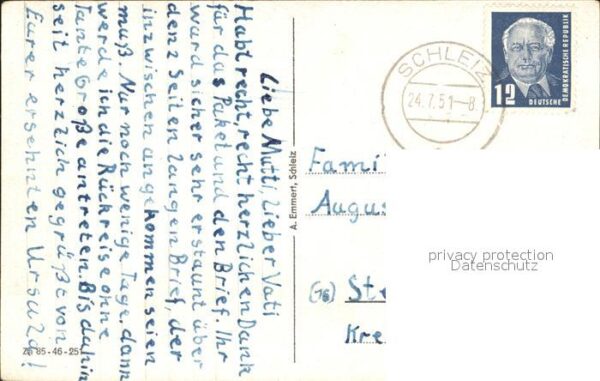 Liebe Mutti, Lieber Vati
Habt recht, recht herzlichen Dank
für das Paket und den Brief. Ihr
ward sicher sehr erstaunt über
den 2 Seiten langen Brief, der
inzwischen angekommen seien
muß. Nur noch wenige Tage, dann
werde ich die Rückreise ohne
Tante Große antreten. Bis dahin
seit herzlich gegrüßt von
Eurer ersehnten Ursula!
Zb 85-46-251
A. Emmert, Schleiz
SCHLEIZ
24.7.51-8
12
DEUTSCHE
DEMOKRATISCHE REPUBLIK
Fami
Augu
privacy protection
Datenschutz
(16) Ste
Kre